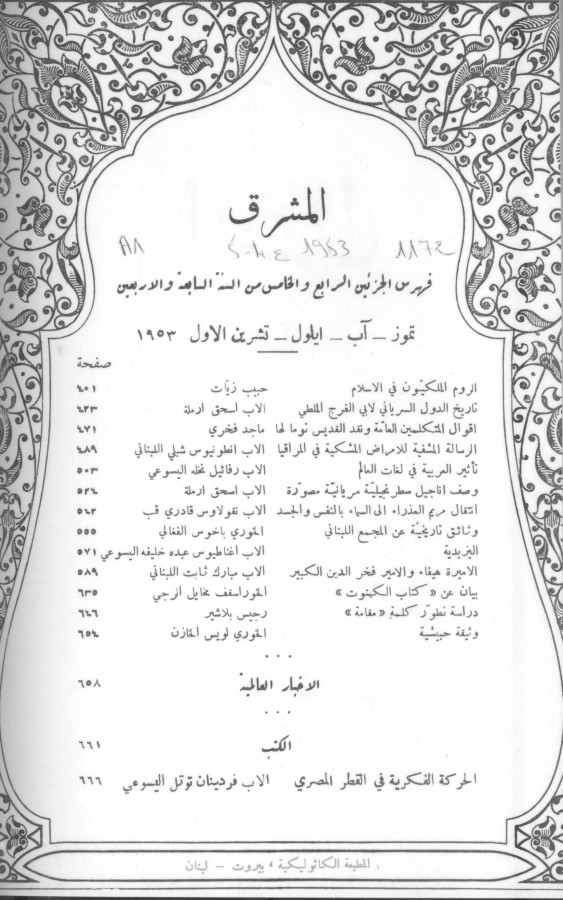 المشرق
A1 1953 1172
فهرس الجزئين الرابع والخامس من السنة السابعة والاربعين
تموز – آب – ايلول – تشرين الاول ١٩٥٣
صفحة
الروم الملكيّون في الاسلام حبيب زيّات ٤٠١
تاريخ الدول السرياني لابي الفرج الملطي الاب اسحق ارملة ٤٣٣
اقوال المتكلمين العامّة ونقد القديس توما لها ماجد فخري ٤٧١
الرسالة المشفية للامراض المشكية في المراقيا الاب انطونيوس شبلي اللبناني ٤٨٩
تأثير العربية في لغات العالم الاب رفائيل نخله اليسوعي ٥٠٣
وصف اناجيل سطرنجيليّة سريانيّة مصوّرة الاب اسحق ارملة ٥٢٤
انتقال مريم العذراء الى السماء بالنفس والجسد الاب نقولاوس قادري قب ٥٤٢
وثائق تاريخيّة عن المجمع اللبناني الخوري باخوس الفغالي ٥٥٥
اليزيدية الاب اغناطيوس عبده خليفه اليسوعي ٥٧١
الاميرة هيفاء والامير فخر الدين الكبير الاب مبارك ثابت اللبناني ٥٨٩
بيان عن « كتاب الكهنوت » الخوراسقف مخايل الرجي ٦٣٥
دراسة تطوّر كلمة « مقامة » رجيس بلاشير ٦٤٦
وثيقة حبيشية الخوري لويس الخازن ٦٥٤
. . .
الاخبار العالمية ٦٥٨
. . .
الكتب ٦٦١
الحركة الفكرية في القطر المصري الاب فردينان توتل اليسوعي ٦٦٦
المطبعة الكاثوليكية ، بيروت – لبنان